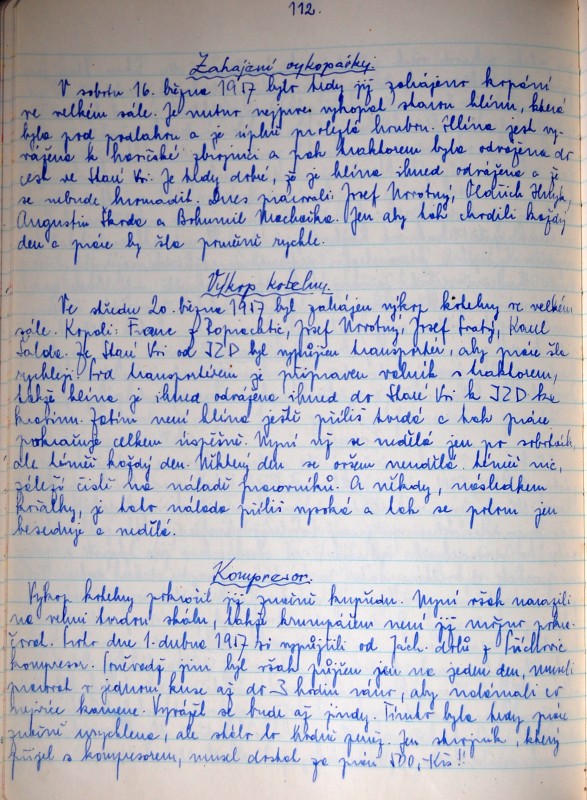 112.
Zahájení vykopávky.
V sobotu 16. března 1957 bylo tedy již zahájeno kopání
ve velkém sále. Je nutno nejprve vykopat starou hlínu, která
byla pod podlahou a je úplně prolezlá houbou. Hlína jest vy-
vážena k hasičské zbrojnici a pak traktorem bude odvážena do
cest ve Staré Vsi. Je tedy dobré, že je hlína ihned odvážena a že
se nebude hromadit. Dnes pracovali: Josef Novotný, Oldřich
Augustin Škoda a Bohumil Machačka. Jen aby tak chodili každý
den a práce by šla poměrně rychle.
Výkop kotelny.
Ve středu 20. března 1957 byl zahájen výkop kotelny ve velkém
sále. Kopali: Franc z Popovic, Josef Novotný, Josef Karel
Šalda. Ze Staré Vsi od JZD byl vypůjčen transportér, aby práce šla
rychleji. Pod transportérem je připraven valník s traktorem,
takže hlína je ihned odvážena ihned do Staré Vsi k JZD ke
Zatím není hlína ještě příliš tvrdá a tak práce
pokračuje celkem úspěšně. Nyní už se nedělá jen po sobotách,
ale téměř každý den. Některý den se ovšem neudělá téměř nic,
záleží čistě na náladě pracovníků. A někdy, následkem
kořalky, je tato nálada příliš vysoká a tak se potom jen
beseduje a nedělá.
Kompresor.
Výkop kotelny pokročil již značně kupředu. Nyní však narazili
na velmi tvrdou skálu, takže krumpáčem není již možno pokra-
čovat. Proto dne 1. dubna 1957 si vypůjčili od Jách. dolů z
kompresor. Poněvadž jim byl však půjčen jen na jeden den, museli
pracovat v jednom kuse až do 3 hodin ráno, aby nalámali co
nejvíce kamene. Vyvážet se bude až jindy. Tímto byla tedy práce
značně urychlena, ale stálo to hodně peněz. Jen strojník, který
přijel s kompresorem, musel dostat za práci 500,-Kčs!!